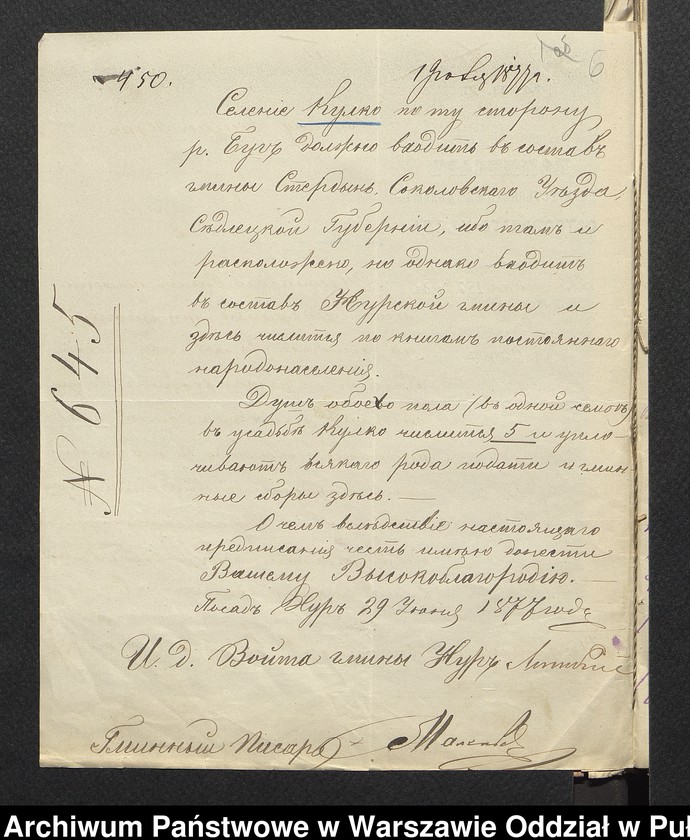 450.
1877 г.
6
Селеніе Кулко по ту сторону
р. Бугъ должно входить въ составъ
гмины Стердынь, Соколовскаго Уѣзда,
Сѣдлецкой Губерніи, ибо тамъ и
расположено, но однако входитъ
въ составъ Нурской гмины и
здѣсь числится по книгамъ постояннаго
народонаселенія.
Душъ обоего пола (въ одной семьѣ)
въ усадьбѣ Кулко числится 5 и упла-
чиваютъ всякаго рода подати и гмин-
ные сборы здѣсь. —
О чемъ вслѣдствіе настоящаго
предписанія честь имѣю донести
Вашему Высокоблагородію. —
Посадъ Нуръ 29 Іюня 1877 года
И. д. Войта гмины Нуръ
Гминный Писарь
№ 645
Archiwum Państwowe w Warszawie Oddział w Pu